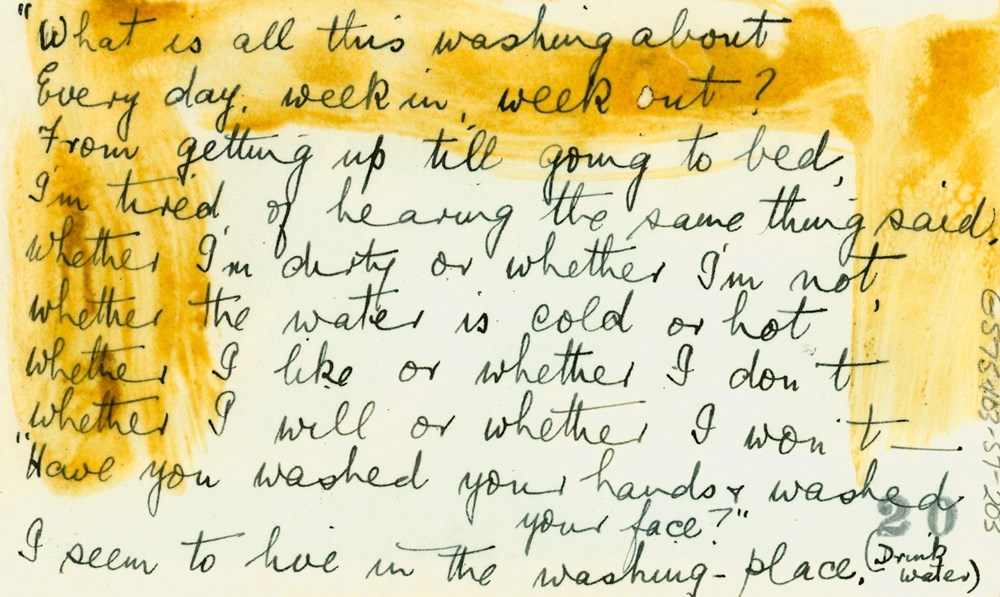 "What is all this washing about
Every day, week in, week out?
From getting up till going to bed,
I'm tired of hearing the same thing said,
whether I'm dirty or whether I'm not,
whether the water is cold or hot,
whether I like or whether I don't
whether I will or whether I won't —.
"Have you washed your hands & washed
your face?"
I seem to live in the washing-place.
(Drink
water)
20